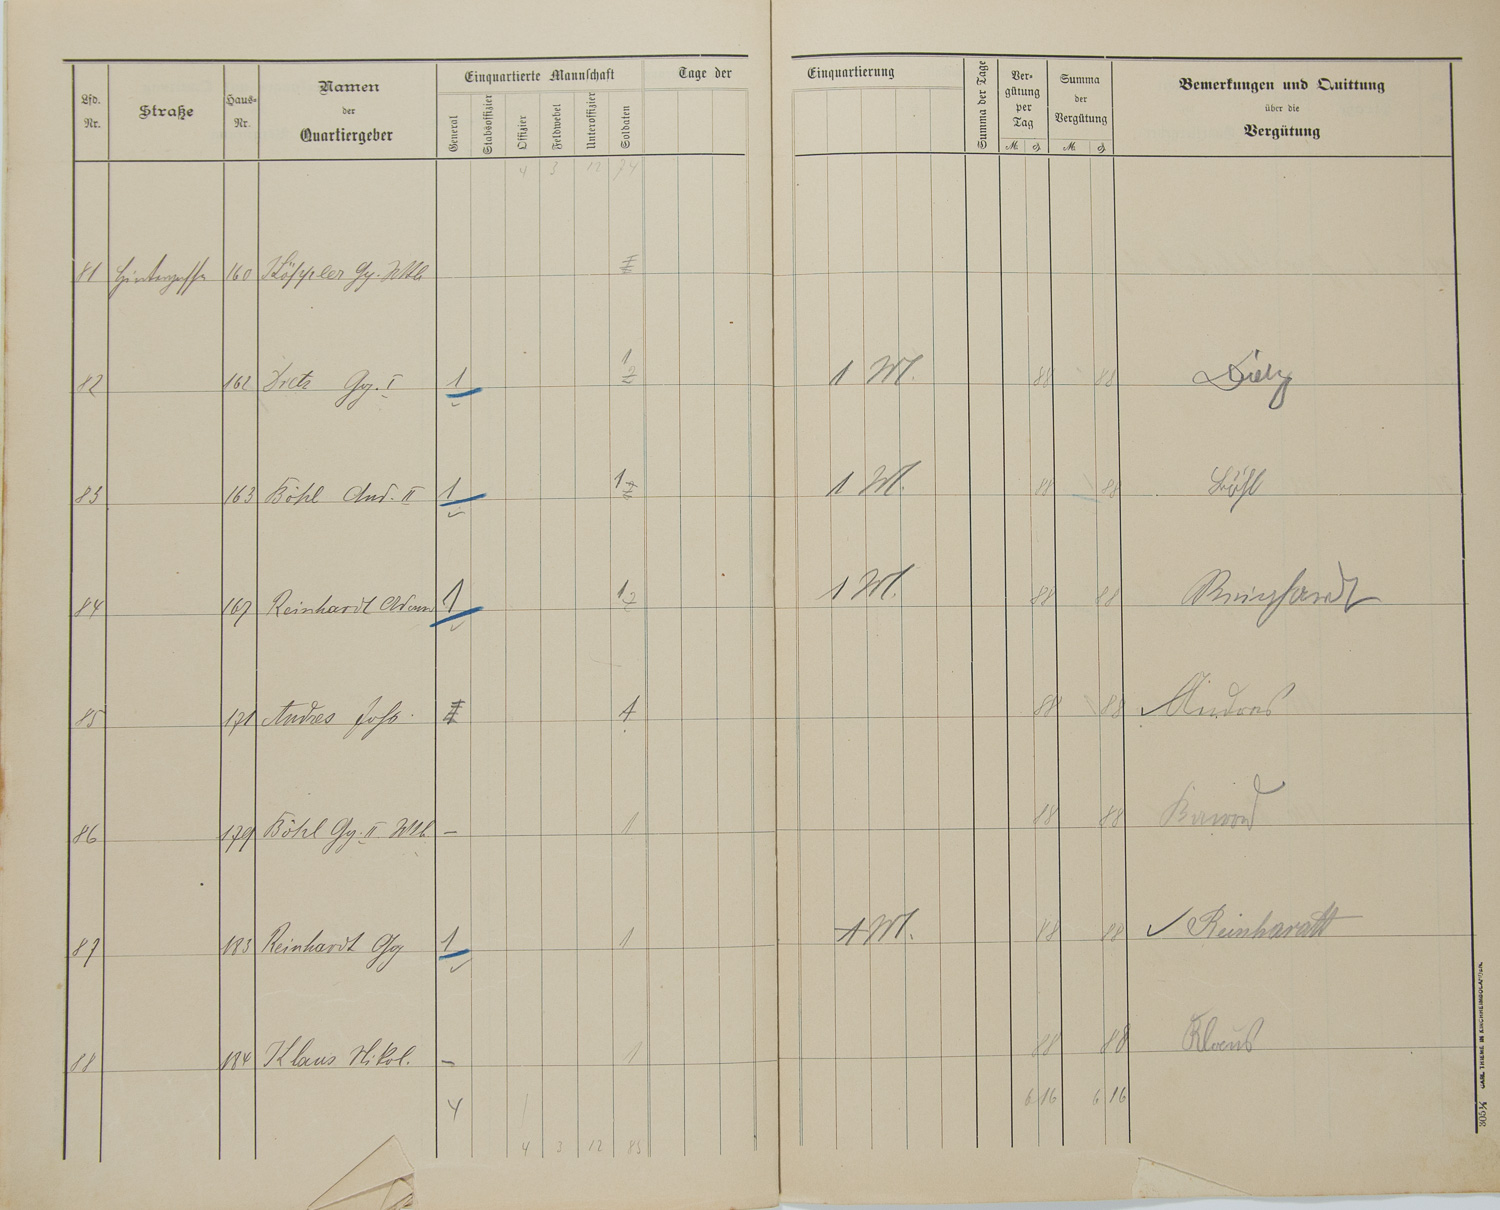 Lfd. Nr. Straße Haus-Nr. Namen der Quartiergeber Einquartierte Mannschaft Tage der Einquartierung Summa der Tage Vergütung per Tag Summa der Vergütung Bemerkungen und Quittung über die Vergütung
General Stabsoffizier Offizier Feldwebel Unteroffizier Soldaten M. ₰ M. ₰
4 3 12 74
81 Hintergasse 160 Köppler Gg. Wtb
82 162 Dietz Gg. I 1 1 2 1 M. 88 88 Dietz
83 163 Böhl And. II 1 1 1 M. 88 88 Böhl
84 167 Reinhardt Adam 1 1 2 1 M. 88 88 Reinhardt
85 171 Andres Joh. 1 88 88 Andres
86 179 Böhl Gg. II Wtb. — 1 88 88
87 183 Reinhardt Gg 1 1 1 M. 88 88 Reinharatt
88 184 Klaus Nikol. — 1 88 88 Klaus
4 1 6 16 6 16
4 3 12 83
305¼ CARL THIEME IN KIRCHHEIMBOLANDEN.